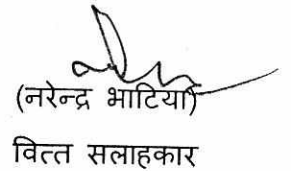 (नरेन्द्र भाटिया)
वित्त सलाहकार